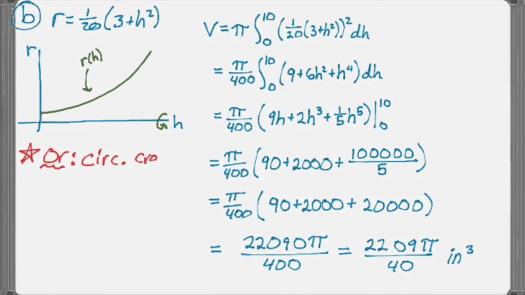 b r = 1/20 (3+h²)
r
r(h)
h
☆ Or: circ. cro
V = π ∫₀¹⁰ (1/20 (3+h²))² dh
= π/400 ∫₀¹⁰ (9+6h²+h⁴) dh
= π/400 (9h+2h³+1/5 h⁵) |₀¹⁰
= π/400 (90+2000+ 100000/5)
= π/400 (90+2000+20000)
= 22090π/400 = 2209π/40 in³